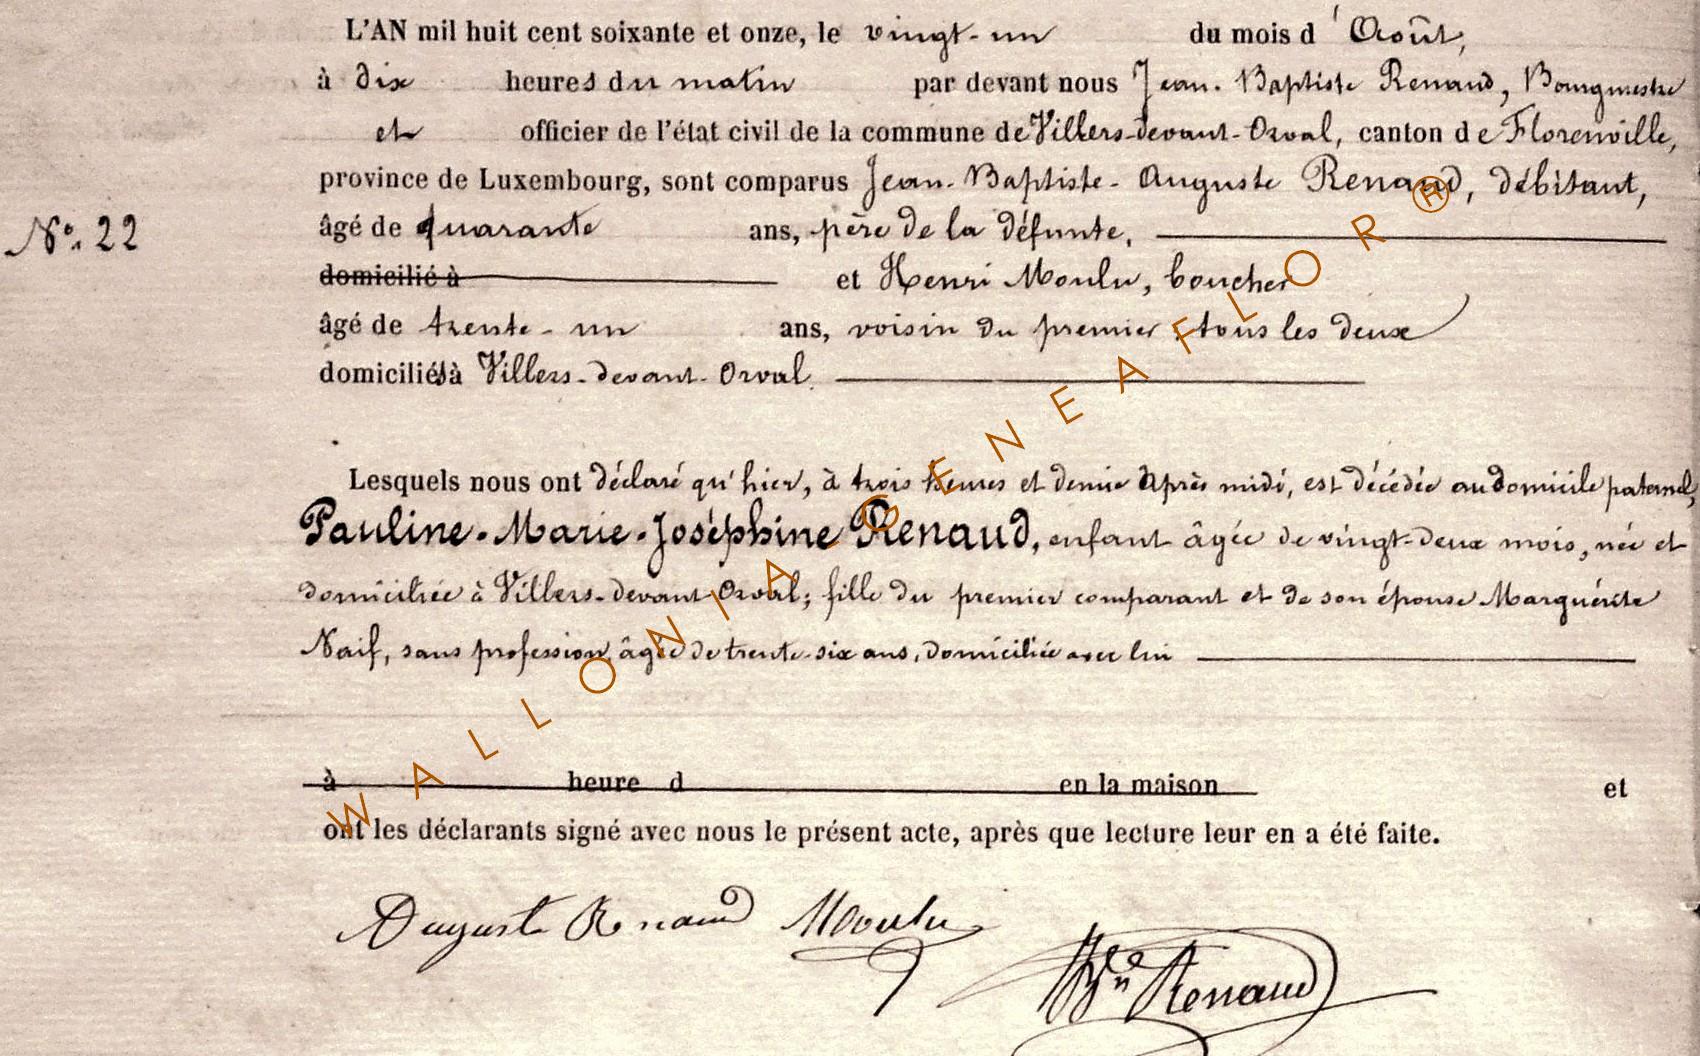 L'AN mil huit cent soixante et onze, le vingt-un du mois d'Août,
à dix heures du matin par devant nous Jean-Baptiste Renaud, Bourgmestre
et officier de l'état civil de la commune de Villers-devant-Orval, canton de Florenville,
province de Luxembourg, sont comparus Jean-Baptiste-Auguste Renaud, débitant,
N°. 22
âgé de quarante ans, père de la défunte,
domicilié à et Henri Moulu, boucher
âgé de trente-un ans, voisin du premier, tous les deux
domiciliés à Villers-devant-Orval.
Lesquels nous ont déclaré qu'hier, à trois heures et demie après midi, est décédée au domicile paternel,
Pauline-Marie-Joséphine Renaud, enfant âgée de vingt-deux mois, née et
domiciliée à Villers-devant-Orval; fille du premier comparant et de son épouse Marguérite
Naif, sans profession, âgée de trente-six ans, domiciliée avec lui
à heure d en la maison et
ont les déclarants signé avec nous le présent acte, après que lecture leur en a été faite.
Auguste Renaud Moulu
Renaud
WALLONIA GENEAFLOR®